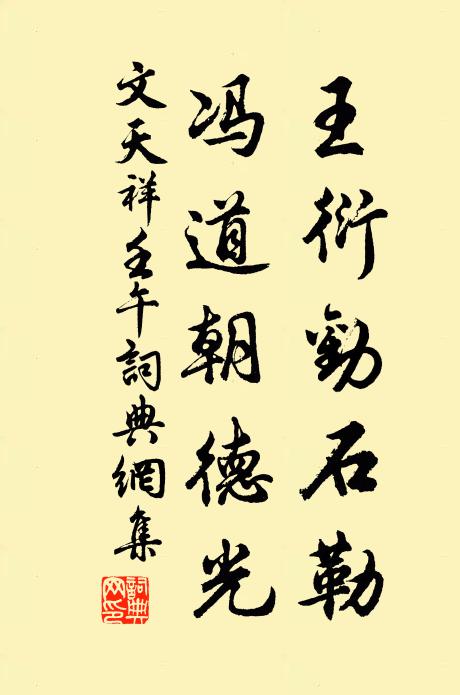 王衍勸石勒
冯道朝德光
文天祥壬午詞典網集
詞典网印